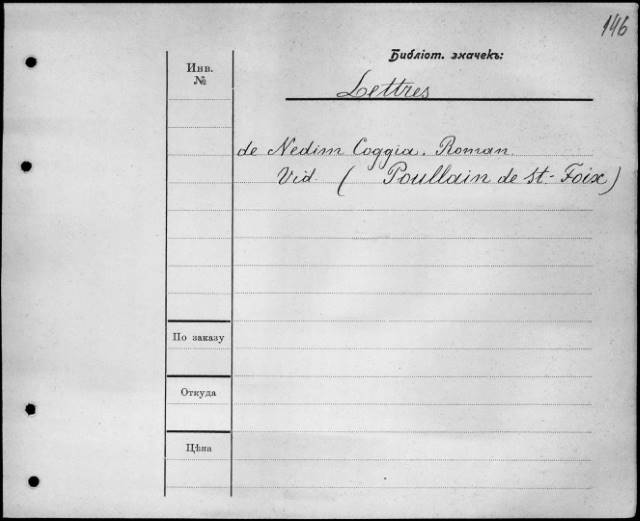 146
Библіот. значекъ:
Инв.
№
Lettres
de Nedim Coggia. Roman.
Vid. ( Poullain de St-Foix)
По заказу
Откуда
Цѣна